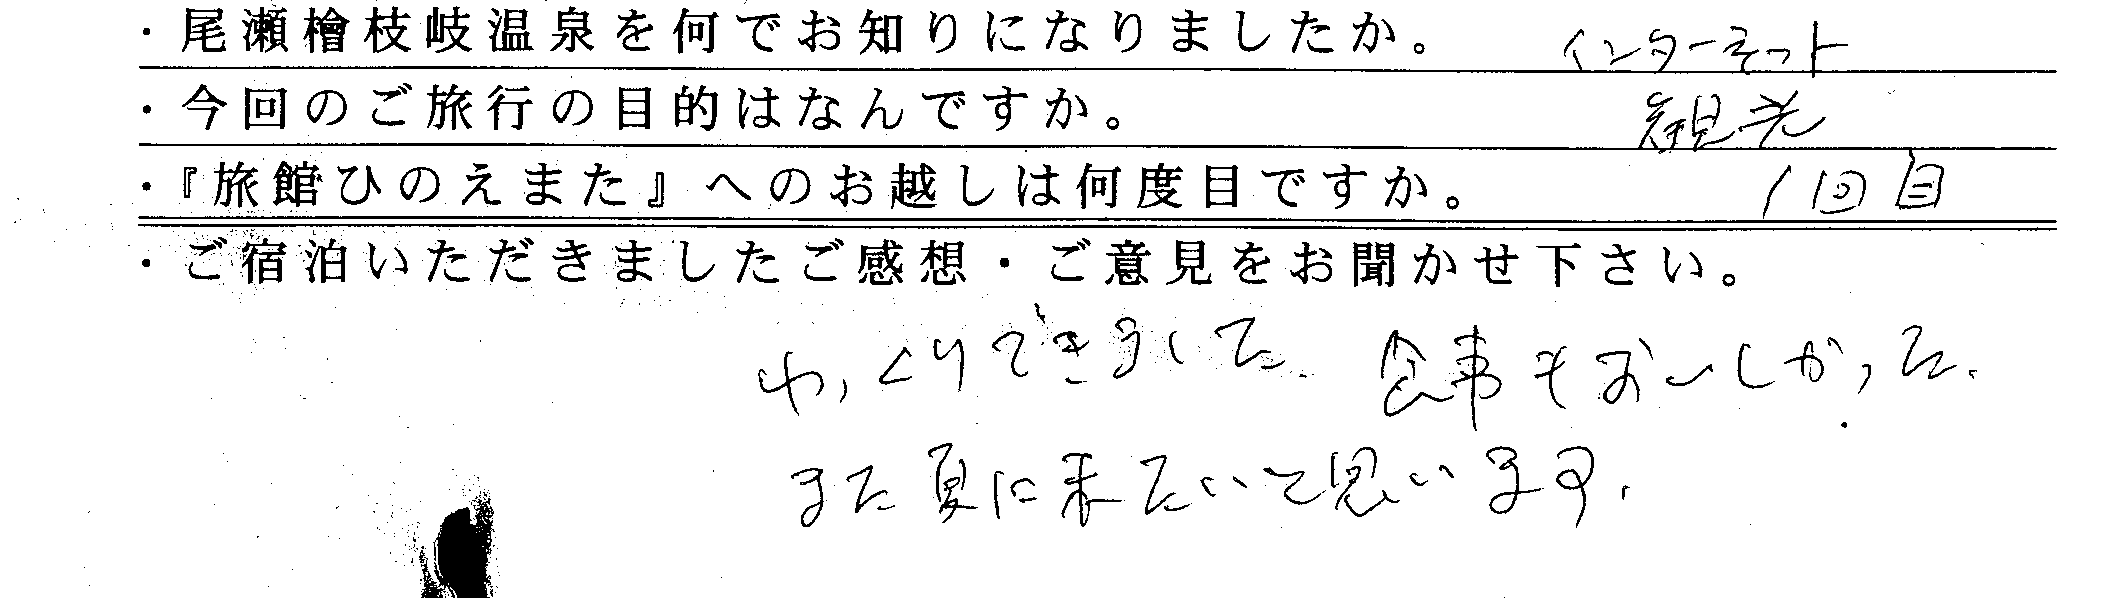 ・尾瀬檜枝岐温泉を何でお知りになりましたか。 インターネット
・今回のご旅行の目的はなんですか。 観光
・『旅館ひのえまた』へのお越しは何度目ですか。 1回目
・ご宿泊いただきましたご感想・ご意見をお聞かせ下さい。
ゆっくりできました。食事もおいしかった。
また夏に来たいと思います。